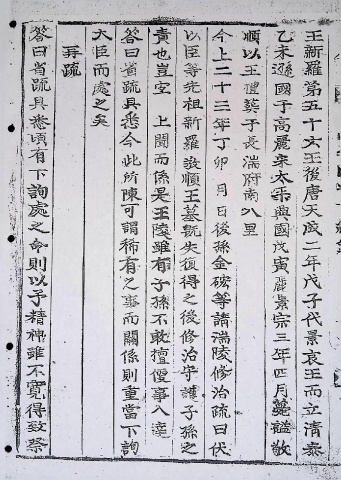 王新羅第五十六王後唐天成二年戊子代景哀王而立清泰
乙未遜國于高麗宋太平興國戊寅麗景宗三年四月薨謚敬
順以王禮葬于長湍府南八里
今上二十三年丁卯 月 日後孫金磋等請湍陵修治疏曰伏
以臣等先祖新羅敬順王墓既失復得之後修治守護子孫之
責也豈宜 上聞而係是王陵雖有子孫不敢擅便事八達
答曰省疏具悉今此所陳可謂稀有之事而關係則重當下詢
大臣而處之矣
再疏
答曰省疏具悉頃有下詢處之之命則以予精神雖不寬得致祭